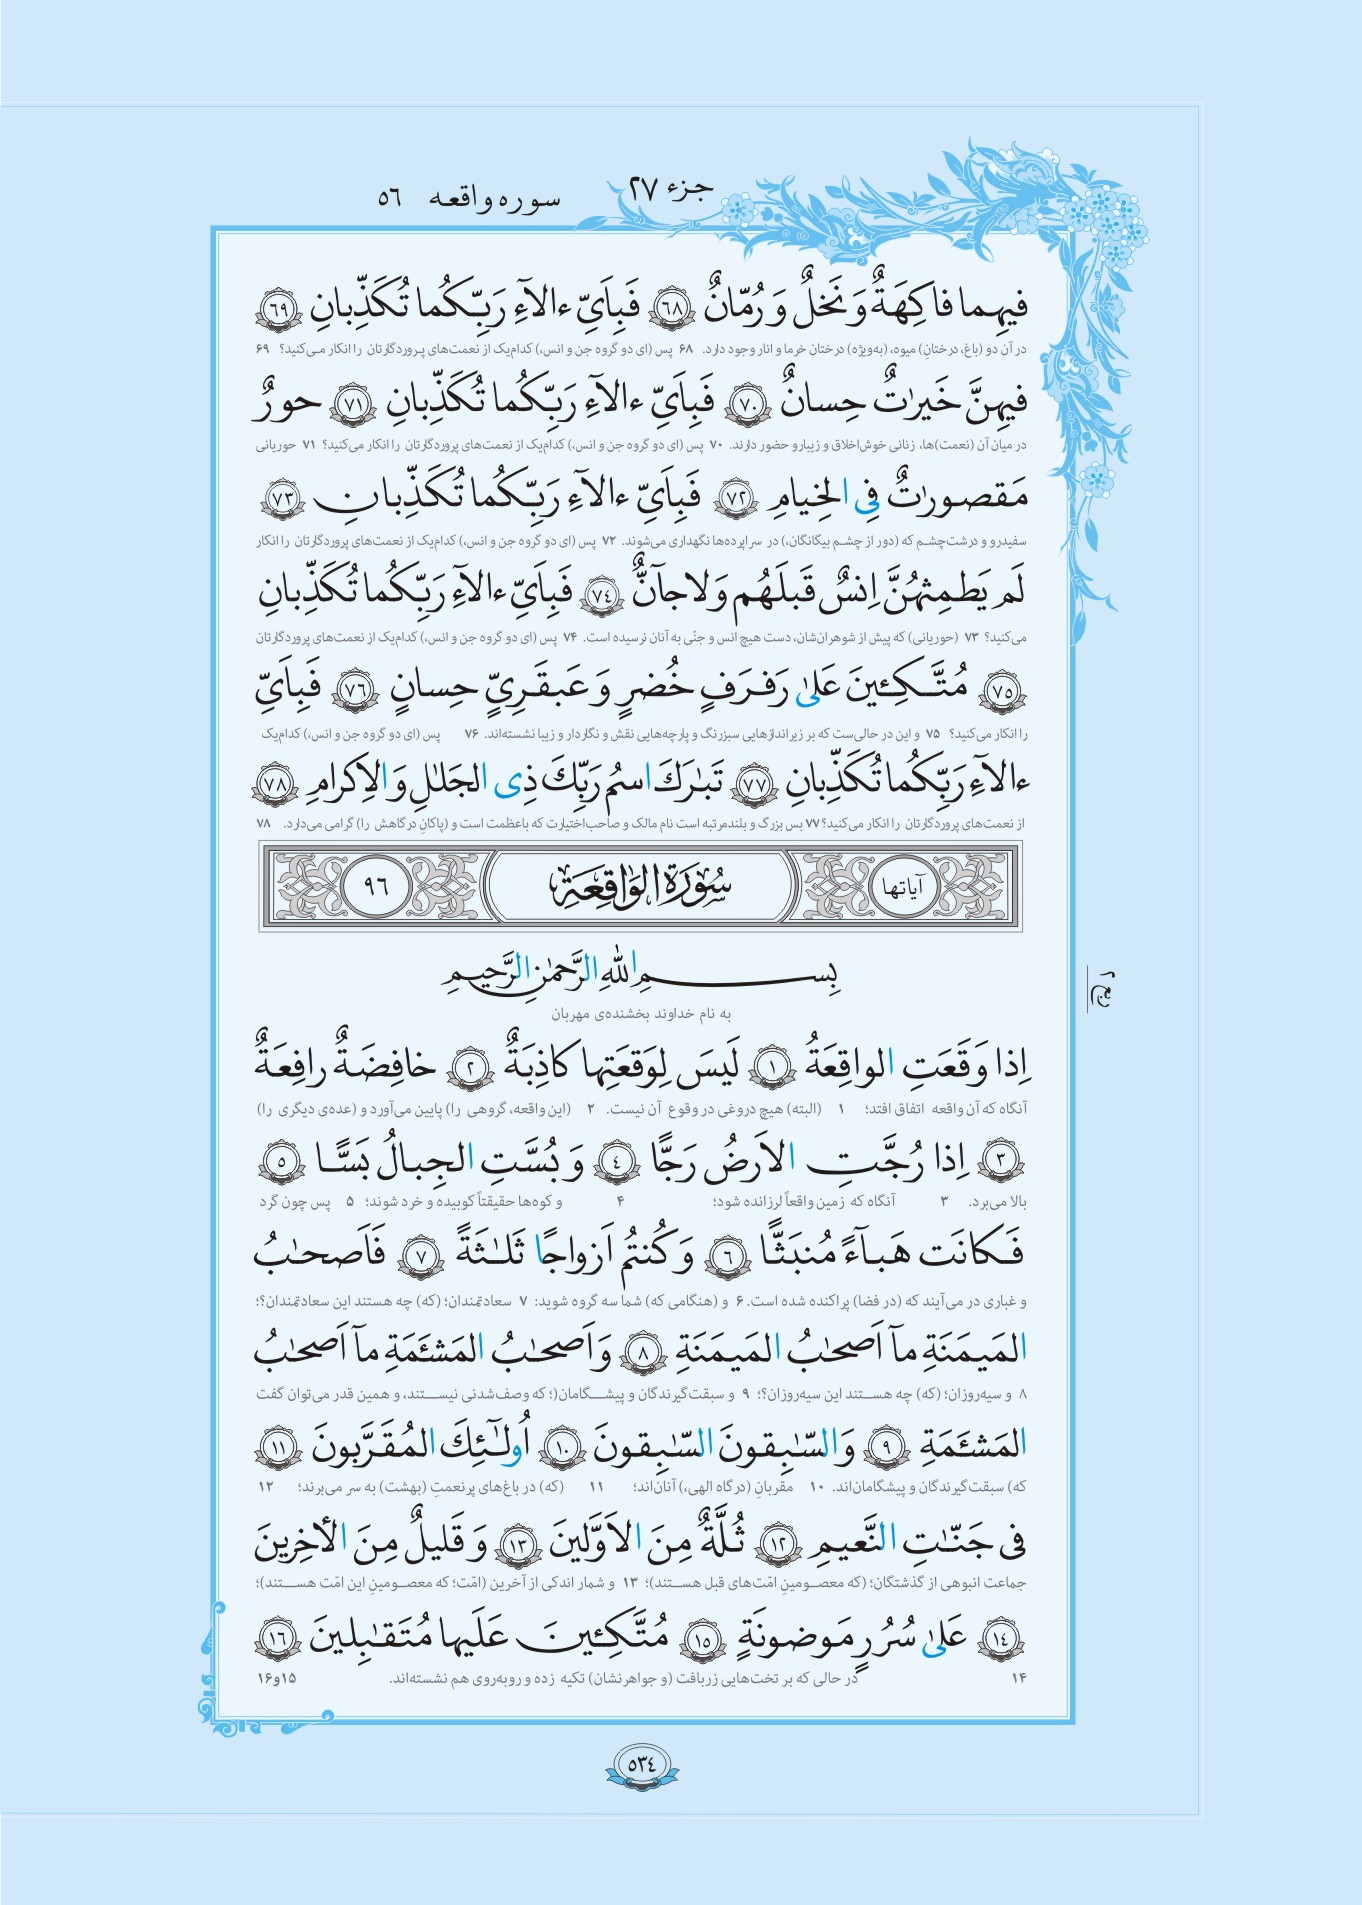 جزء ۲۷
سوره واقعه ۵۶
فيهِما فاكِهَةٌ وَ نَخلٌ وَ رُمّانٌ ﴿٦٨﴾ فَبِاَيِّ ءالآءِ رَبِّكُما تُكَذِّبانِ ﴿٦٩﴾
در آن دو (باغ، درختان) میوه، (به‌ویژه) درختان خرما و انار وجود دارد. ۶۸ پس (ای دو گروه جن و انس،) کدام‌یک از نعمت‌های پروردگارتان را انکار می‌کنید؟ ۶۹
فيهِنَّ خَيراتٌ حِسانٌ ﴿٧٠﴾ فَبِاَيِّ ءالآءِ رَبِّكُما تُكَذِّبانِ ﴿٧١﴾ حورٌ
در میان آن (نعمت)ها، زنانی خوش‌اخلاق و زیبارو حضور دارند. ۷۰ پس (ای دو گروه جن و انس،) کدام‌یک از نعمت‌های پروردگارتان را انکار می‌کنید؟ ۷۱ حوریانی
مَقصوراتٌ فِي الخِيامِ ﴿٧٢﴾ فَبِاَيِّ ءالآءِ رَبِّكُما تُكَذِّبانِ ﴿٧٣﴾
سفیدرو و درشت‌چشم که (دور از چشم بیگانگان،) در سراپرده‌ها نگهداری می‌شوند. ۷۲ پس (ای دو گروه جن و انس،) کدام‌یک از نعمت‌های پروردگارتان را انکار
لَم يَطمِثهُنَّ اِنسٌ قَبلَهُم وَ لا جآنٌّ ﴿٧٤﴾ فَبِاَيِّ ءالآءِ رَبِّكُما تُكَذِّبانِ
می‌کنید؟ ۷۳ (حوریانی) که پیش از شوهران‌شان، دست هیچ انس و جنّی به آنان نرسیده است. ۷۴ پس (ای دو گروه جن و انس،) کدام‌یک از نعمت‌های پروردگارتان
﴿٧٥﴾ مُتَّكِـئينَ عَلىٰ رَفرَفٍ خُضرٍ وَ عَبقَرِيٍّ حِسانٍ ﴿٧٦﴾ فَبِاَيِّ
را انکار می‌کنید؟ ۷۵ و این در حالی‌ست که بر زیراندازهایی سبزرنگ و پارچه‌هایی نقش و نگاردار و زیبا نشسته‌اند. ۷۶ پس (ای دو گروه جن و انس،) کدام‌یک
ءالآءِ رَبِّكُما تُكَذِّبانِ ﴿٧٧﴾ تَبٰرَكَ اسمُ رَبِّكَ ذِى الجَلٰلِ وَ الاِكرامِ ﴿٧٨﴾
از نعمت‌های پروردگارتان را انکار می‌کنید؟ ۷۷ بس بزرگ و بلندمرتبه است نام مالک و صاحب‌اختیارت که باعظمت است و (پاکانِ درگاهش را) گرامی می‌دارد. ۷۸
آیاتها سُورَةُ الوَاقِعَةِ ٩٦
بِسمِ اللّٰهِ الرَّحمٰنِ الرَّحيمِ
به نام خداوند بخشنده‌ی مهربان
ربع ٢
اِذا وَقَعَتِ الواقِعَةُ ﴿١﴾ لَيسَ لِوَقعَتِها كاذِبَةٌ ﴿٢﴾ خافِضَةٌ رافِعَةٌ
آنگاه که آن واقعه اتفاق افتد؛ ۱ (البته) هیچ دروغی در وقوع آن نیست. ۲ (این واقعه، گروهی را) پایین می‌آورد و (عده‌ی دیگری را)
﴿٣﴾ اِذا رُجَّتِ الاَرضُ رَجًّا ﴿٤﴾ وَ بُسَّتِ الجِبالُ بَسًّا ﴿٥﴾
بالا می‌برد. ۳ آنگاه که زمین واقعاً لرزانده شود؛ ۴ و کوه‌ها حقیقتاً کوبیده و خرد شوند؛ ۵ پس چون گرد
فَكانَت هَبآءً مُنبَثًّا ﴿٦﴾ وَ كُنتُم اَزواجًا ثَلٰثَةً ﴿٧﴾ فَاَصحٰبُ
و غباری در می‌آیند که (در فضا) پراکنده شده است. ۶ و (هنگامی که) شما سه گروه شوید: ۷ سعادتمندان؛ (که) چه هستند این سعادتمندان؟؛
المَيمَنَةِ مآ اَصحٰبُ المَيمَنَةِ ﴿٨﴾ وَ اَصحٰبُ المَشئَمَةِ مآ اَصحٰبُ
۸ و سیه‌روزان؛ (که) چه هستند این سیه‌روزان؟؛ ۹ و سبقت‌گیرندگان و پیشگامان(؛ که وصف‌شدنی نیستند، و همین قدر می‌توان گفت
المَشئَمَةِ ﴿٩﴾ وَ السّٰبِقونَ السّٰبِقونَ ﴿١٠﴾ اُولٰـئِكَ المُقَرَّبونَ ﴿١١﴾
که) سبقت‌گیرندگان و پیشگامان‌اند. ۱۰ مقربانِ (درگاه الهی،) آنان‌اند؛ ۱۱ (که) در باغ‌های پرنعمتِ (بهشت) به سر می‌برند؛ ۱۲
فى جَنّٰتِ النَّعيمِ ﴿١٢﴾ ثُلَّةٌ مِنَ الاَوَّلينَ ﴿١٣﴾ وَ قَليلٌ مِنَ الأخِرينَ
جماعت انبوهی از گذشتگان؛ (که معصومینِ امّت‌های قبل هستند)؛ ۱۳ و شمار اندکی از آخرین (امّت؛ که معصومینِ این امّت هستند)؛
﴿١٤﴾ عَلىٰ سُرُرٍ مَوضونَةٍ ﴿١٥﴾ مُتَّكِـئينَ عَلَيها مُتَقٰبِلينَ ﴿١٦﴾
۱۴ در حالی که بر تخت‌هایی زربافت (و جواهرنشان) تکیه زده و روبه‌روی هم نشسته‌اند. ۱۵و۱۶
٥٣٤